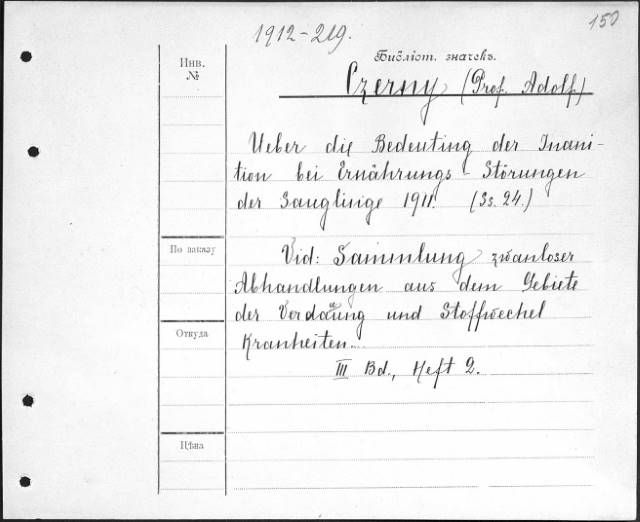 1912-219.
150
Инв.
№
Библіот. значекъ.
Czerny (Prof. Adolf)
Ueber die Bedeuting der Inani-
tion bei Ernährungs-Störungen
der Sauglinge 1911. (Ss. 24.)
По заказу
Vid: Sammlung zwanloser
Abhandlungen aus dem Gebiete
der Verdaüung und Stoffwechel
Откуда
Kranheiten.
III Bd., Heft 2.
Цѣна